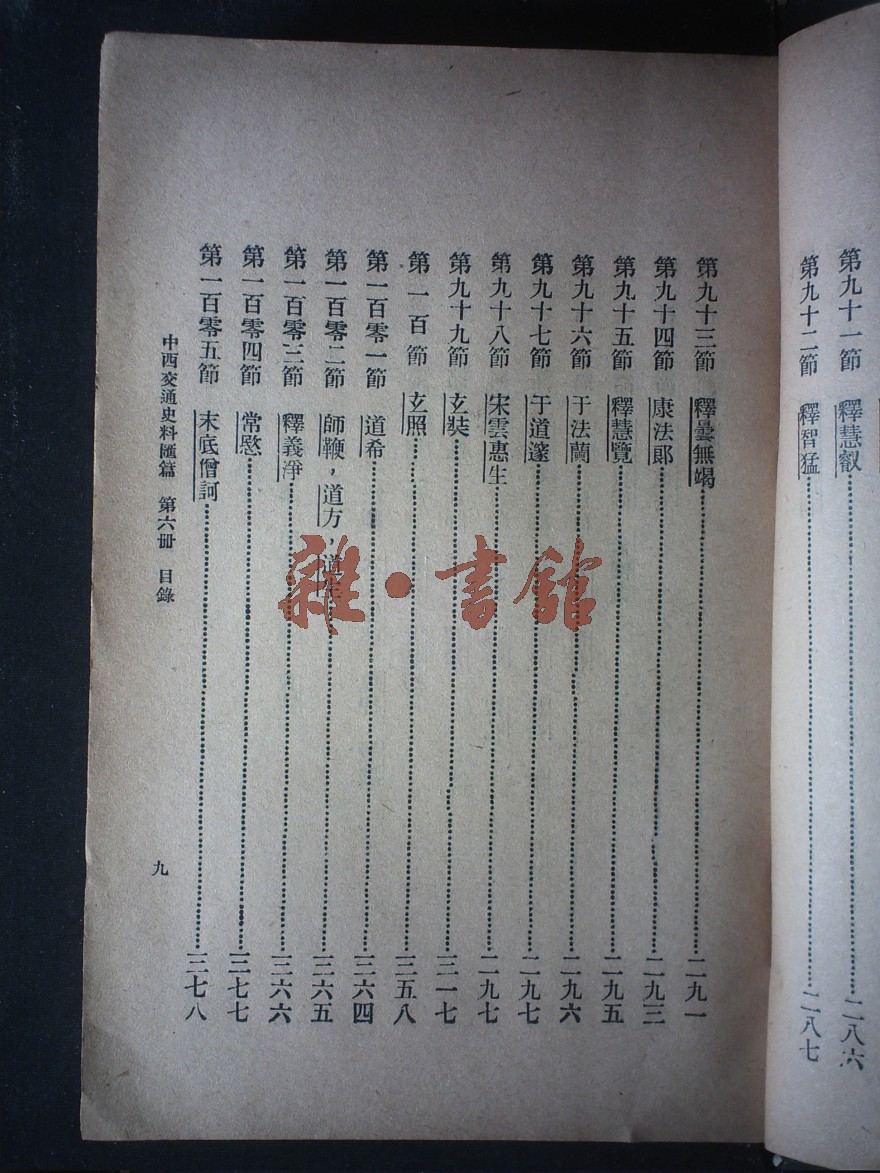 第九十一節 釋慧叡……二八六
第九十二節 釋智猛……二八七
第九十三節 釋曇無竭……二九一
第九十四節 康法郎……二九三
第九十五節 釋慧覽……二九五
第九十六節 于法蘭……二九六
第九十七節 于道邃……二九七
第九十八節 宋雲惠生……二九七
第九十九節 玄奘……三一七
第一百節 玄照……三五八
第一百零一節 道希……三六四
第一百零二節 師鞭，道方，道生……三六五
第一百零三節 釋義淨……三六六
第一百零四節 常慜……三七七
第一百零五節 末底僧訶……三七八
中西交通史料匯篇 第六冊 目錄 九
雜·書館